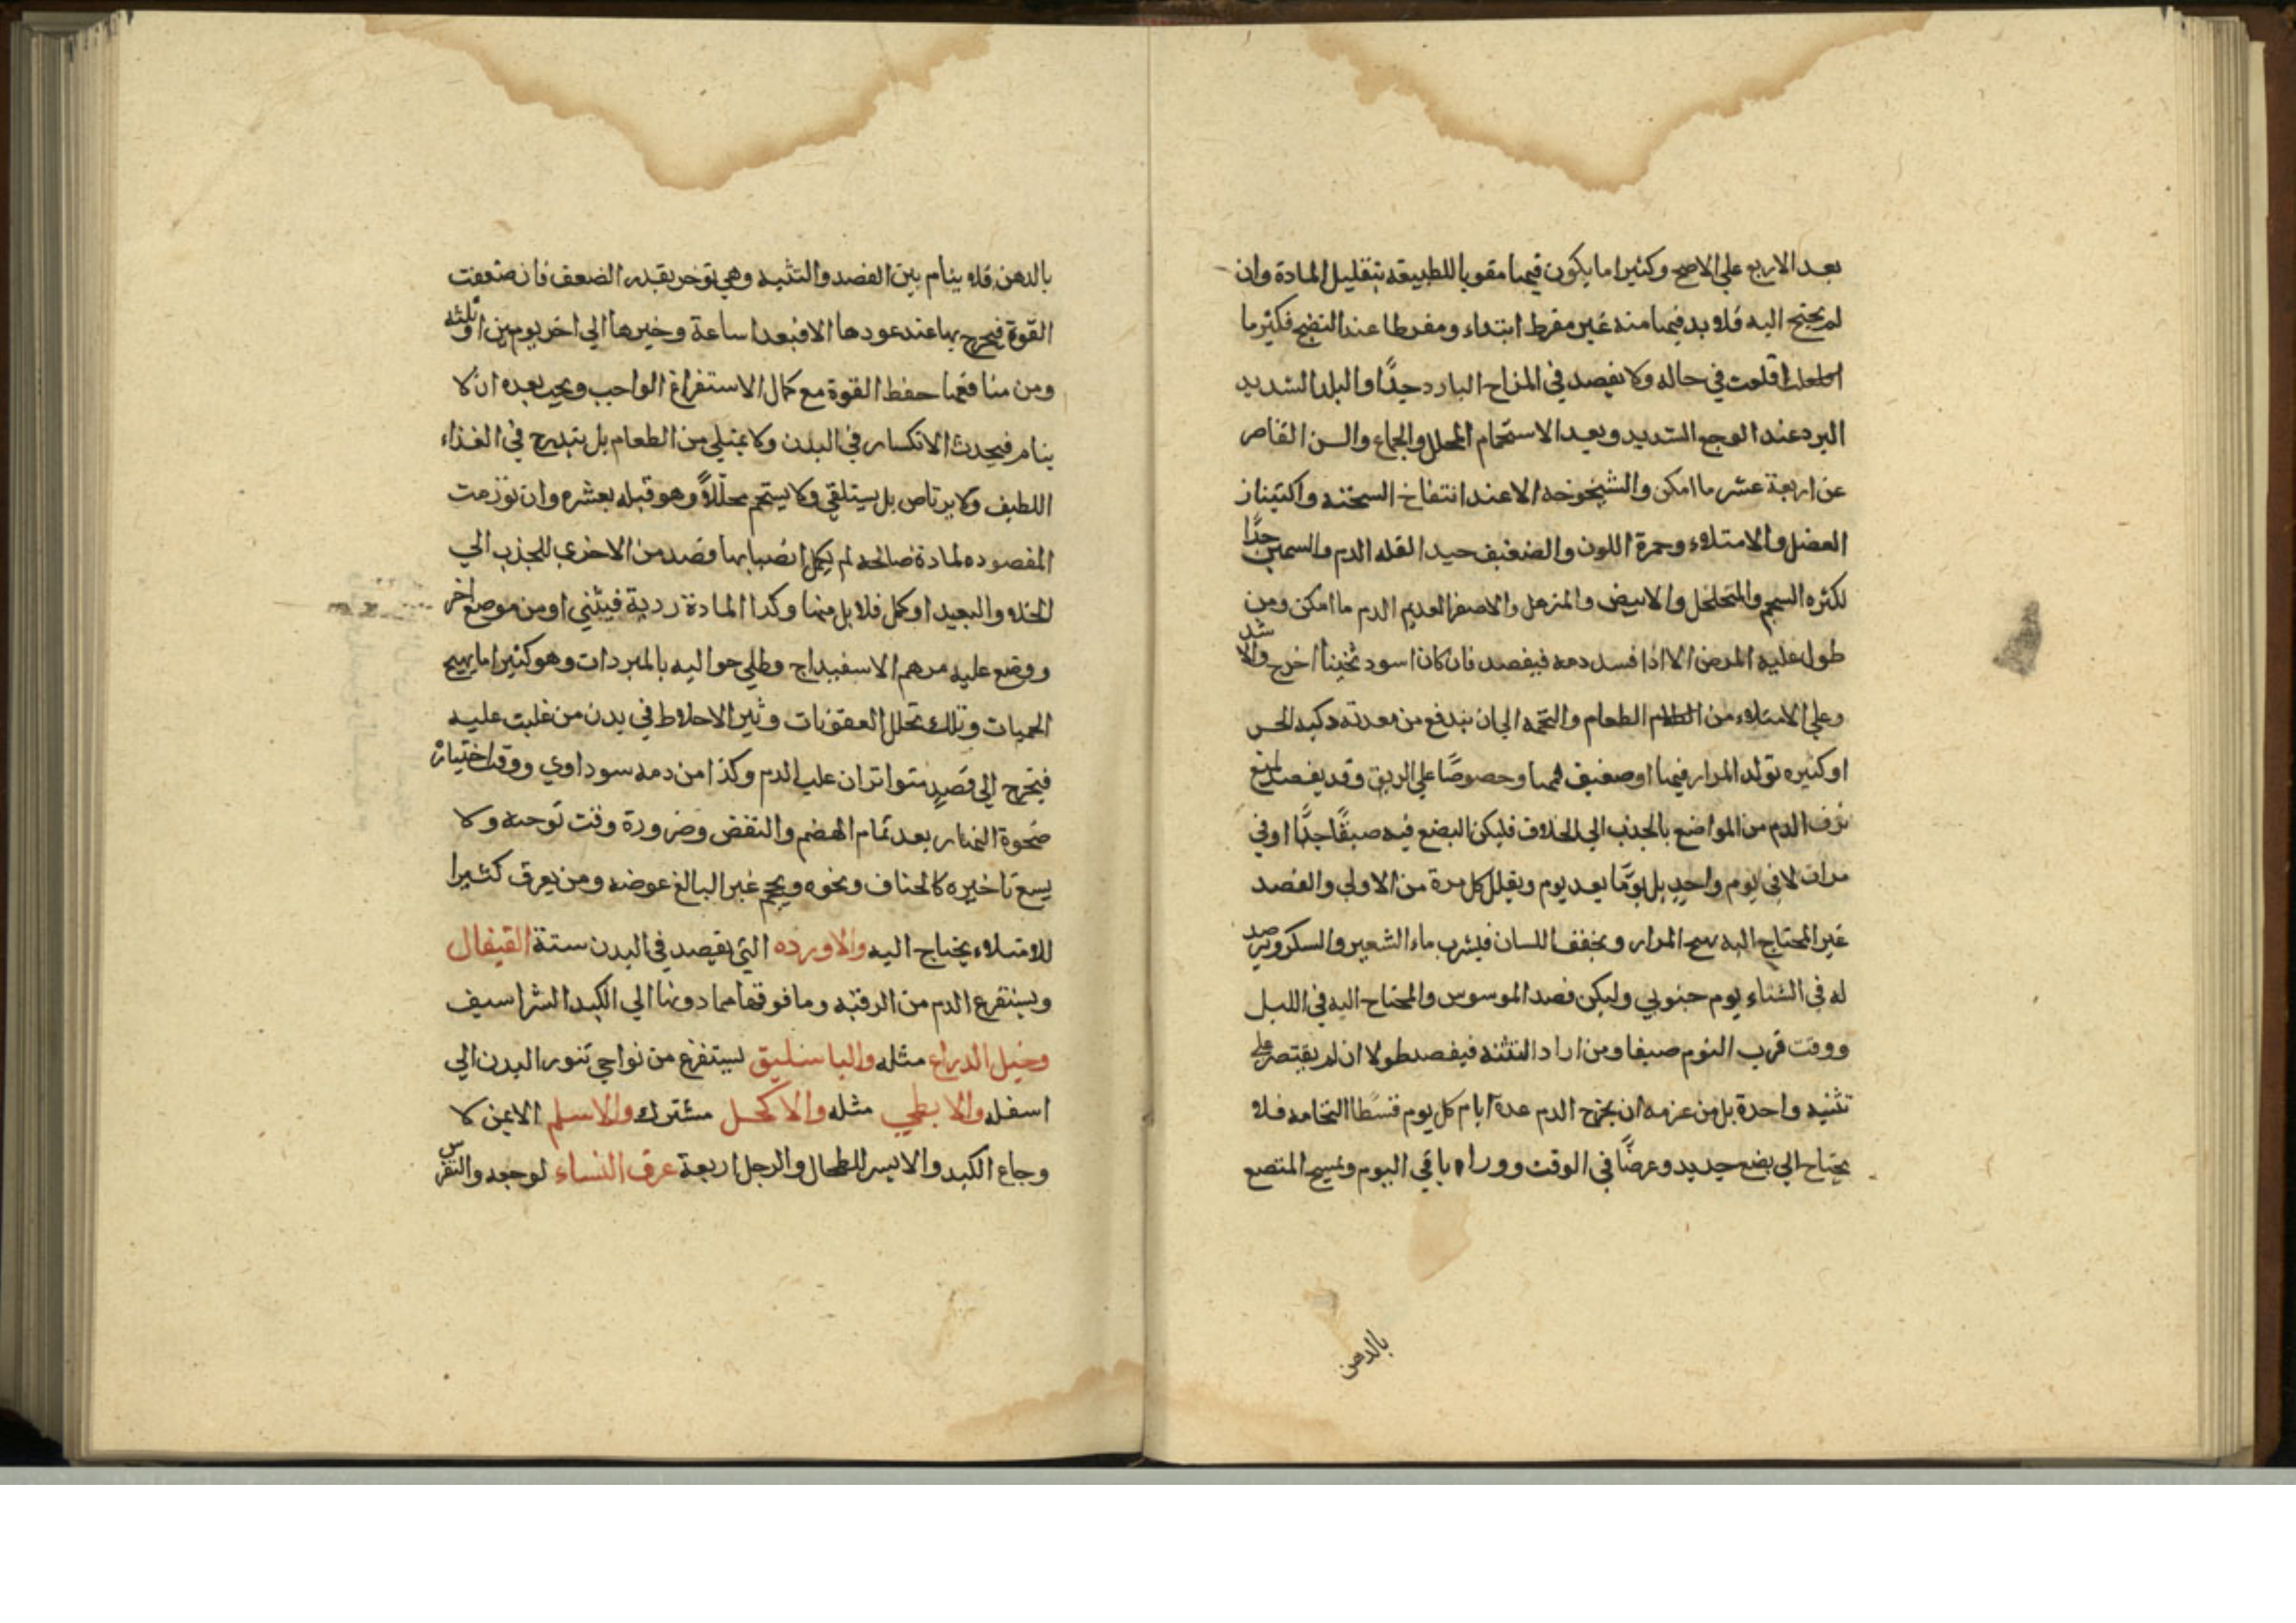 بعد الاربع علي الاصح وكثيرا ما يكون فيها مقويا للطبيعة بتقليل المادة وان
لم يحتج اليه فلا بد فيما منه غير مفرط ابتداء ومفرطا عند النضج فكثير ما
اقلعت في حاله ولا يفصد في المزاج البارد جدًّا والبلد الشديد
البرد عند الوجع الشديد وبعد الاستحمام المحلل والجماع والسن القاصر
عن اربعة عشر ما امكن والشيخوخه الا عند انتفاخ السحنه واكتناز
العضل والامتلاء وحمرة اللون والضعيف جدا لقله الدم والسمين جدًّا
لكثره السحم والمتخلخل والابيض والمترهل والاصفر العديم الدم ما امكن ومن
طول عليه المرض الا اذا فسد دمه فيفصد فان كان اسود ثخينا اخرج والا شد
وعلي الامتلاء من الطعام والتخمه الي ان يندفع من معدته ذكيه الحس
او كثيره تولد المرار فيها او ضعيف فمها وخصوصًا علي الريق وقد يفصد لمنع
نزف الدم من المواضع بالجذب الي الخلاف فليكن البضع فيه ضيقًا جدًّا او في
مرات لا في يوم واحدٍ بل يومًا بعد يوم ويقلل كل مرة من الاولي والفصد
غير المحتاج اليه يهيج المرار ويجفف اللسان فيشرب ماء الشعير والسكر ويرصد
له في الشتاء يوم جنوبي وليكن فصد الموسوس والمحتاج اليه في الليل
ووقت قرب النوم ضيقا ومن اراد التثنه فيفصد طولا ان لم يقتصر علي
تثنيه واحدة بل من عزمه ان يخرج الدم عدة ايام كل يوم قسطا التحامه فلا
يحتاج الي بضع جديد وعرضًا في الوقت ووراء باقي اليوم ويمسح المبضع
بالدهن
بالدهن فلا ينام بين الفصد والتثنيه وهي توخر بقدر الضعف فان ضعفت
القوة فيخرج بها عند عودها الا فبعد ساعة وخيرها الي اخر يومين او ثلثه
ومن منافعها حفظ القوة مع كمال الاستفراغ الواجب ويجب بعده ان لا
ينام فيحدث الانكسار في البدن ولا يمتلي من الطعام بل يتدرج في الغذاء
اللطيف ولا يرتاض بل يستلقي ولا يستحم محللاً وهو قبله بعشره وان تورمت
المفصوده لمادة صالحه لم يكمل انصبابها فصد من الاخري للجذب الي
الخلاف والبعيد او كمل فلا بل منها وكذا المادة ردية فيثني او من موضع اخر
ووضع عليه مرهم الاسفيداج وطلي حواليه بالمبردات وهو كثيرا ما يهيج
الحميات وتلك تحلل العفونات وتثير الاخلاط في بدن من غلبت عليه
فيخرج الي فصدٍ متواتران غلب الدم وكذا من دمه سوداوي ووقت اختيارا
ضحوة النهار بعد تمام الهضم والنفض وضرورة وقت توجبه ولا
يسع تاخيره كالخناق ونحوه ويحجم غير البالغ عوضه ومن يعرق كثيرا
للامتلاء يحتاج اليه والاورده التي يفصد في البدن ستة القيفال
ويستفرغ الدم من الرقبه وما فوقها مما دونها الي الكبد الشراسيف
وحبل الدراع مثله والباسليق ليستفرغ من نواحي تنور البدن الي
اسفله والابطي مثله والاكحل مشترك والاسلم الايمن لا
وجاع الكبد والايسر للطحال والرجل اربعة عرق النساء لوجعه والنقرس